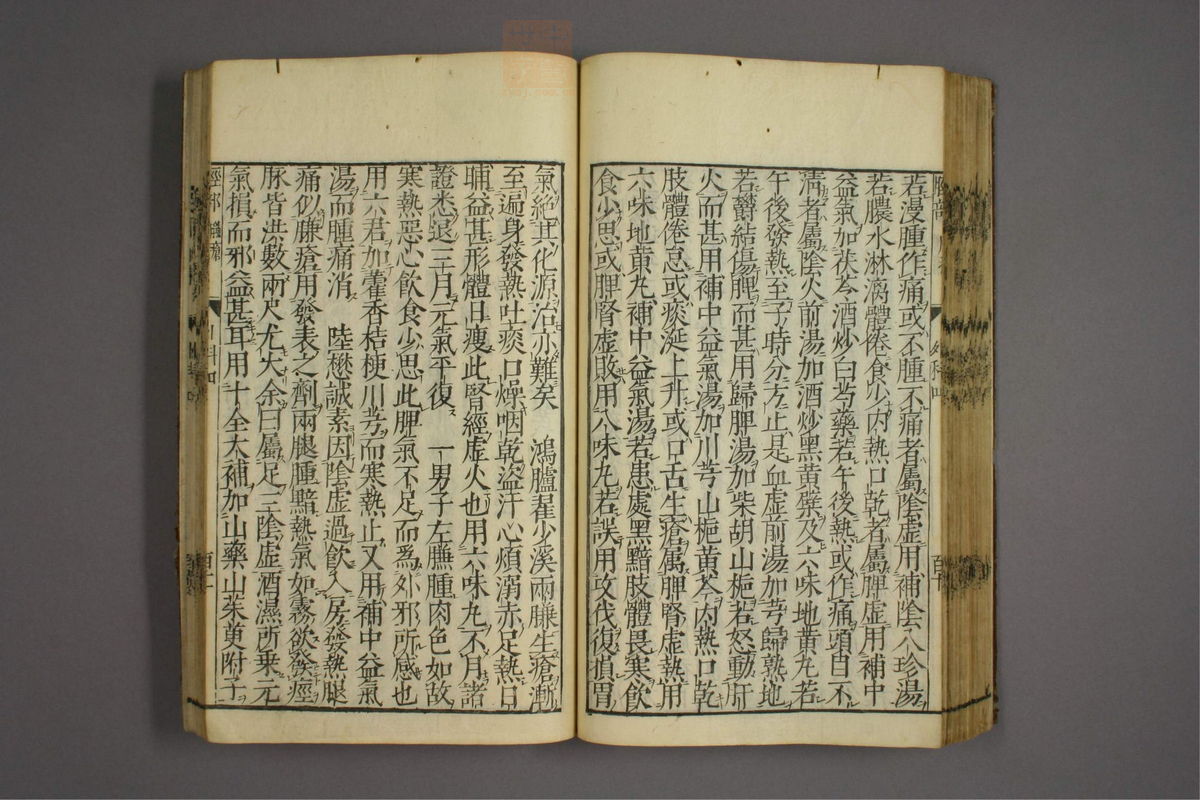 若漫腫作痛或不腫不痛者屬陰虛用補陰八珍湯
若膿水淋漓體倦食少內熱口乾者屬脾虛用補中
益氣加茯苓酒炒白芍藥若午後熱或作痛頭目不
清者屬陰火前湯加酒炒黑黃蘗及六味地黃丸若
午後發熱至子時分方止是血虛前湯加芎歸熟地
若鬱結傷脾而甚用歸脾湯加柴胡山梔若怒動肝
火而甚用補中益氣湯加川芎山梔黃芩內熱口乾
肢體倦怠或痰涎上升或口舌生瘡屬脾腎虛熱用
六味地黃丸補中益氣湯若患處黑黯肢體畏寒飲
食少思或脾腎虛敗用八味丸若誤用攻伐復損胃
氣絕其化源治亦難矣　鴻臚翟少溪兩臁生瘡漸
至遍身發熱吐痰口燥咽乾盜汗心煩溺赤足熱日
晡益甚形體日瘦此腎經虛火也用六味丸不月諸
證悉退三月元氣平復　一男子左臁腫肉色如故
寒熱惡心飲食少思此脾氣不足而為外邪所感也
用六君加藿香桔梗川芎而寒熱止又用補中益氣
湯而腫痛消　陸懋誠素因陰虛過飲入房發熱腿
痛似臁瘡用發表之劑兩腿腫黯熱氣如霧欲發痙
脉皆洪數兩尺尤大余曰屬足三陰虛酒濕所乘元
氣損而邪益甚耳用十全大補加山藥山茱萸附子